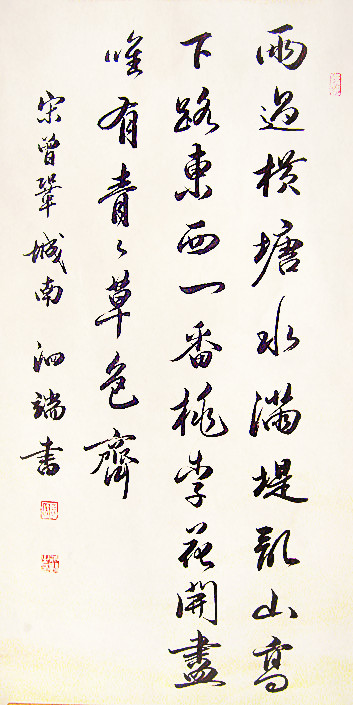 雨過橫塘水滿堤亂山高
下路東西一番桃李花開盡
唯有青〻草色齊
宋曾鞏城南 泗端書